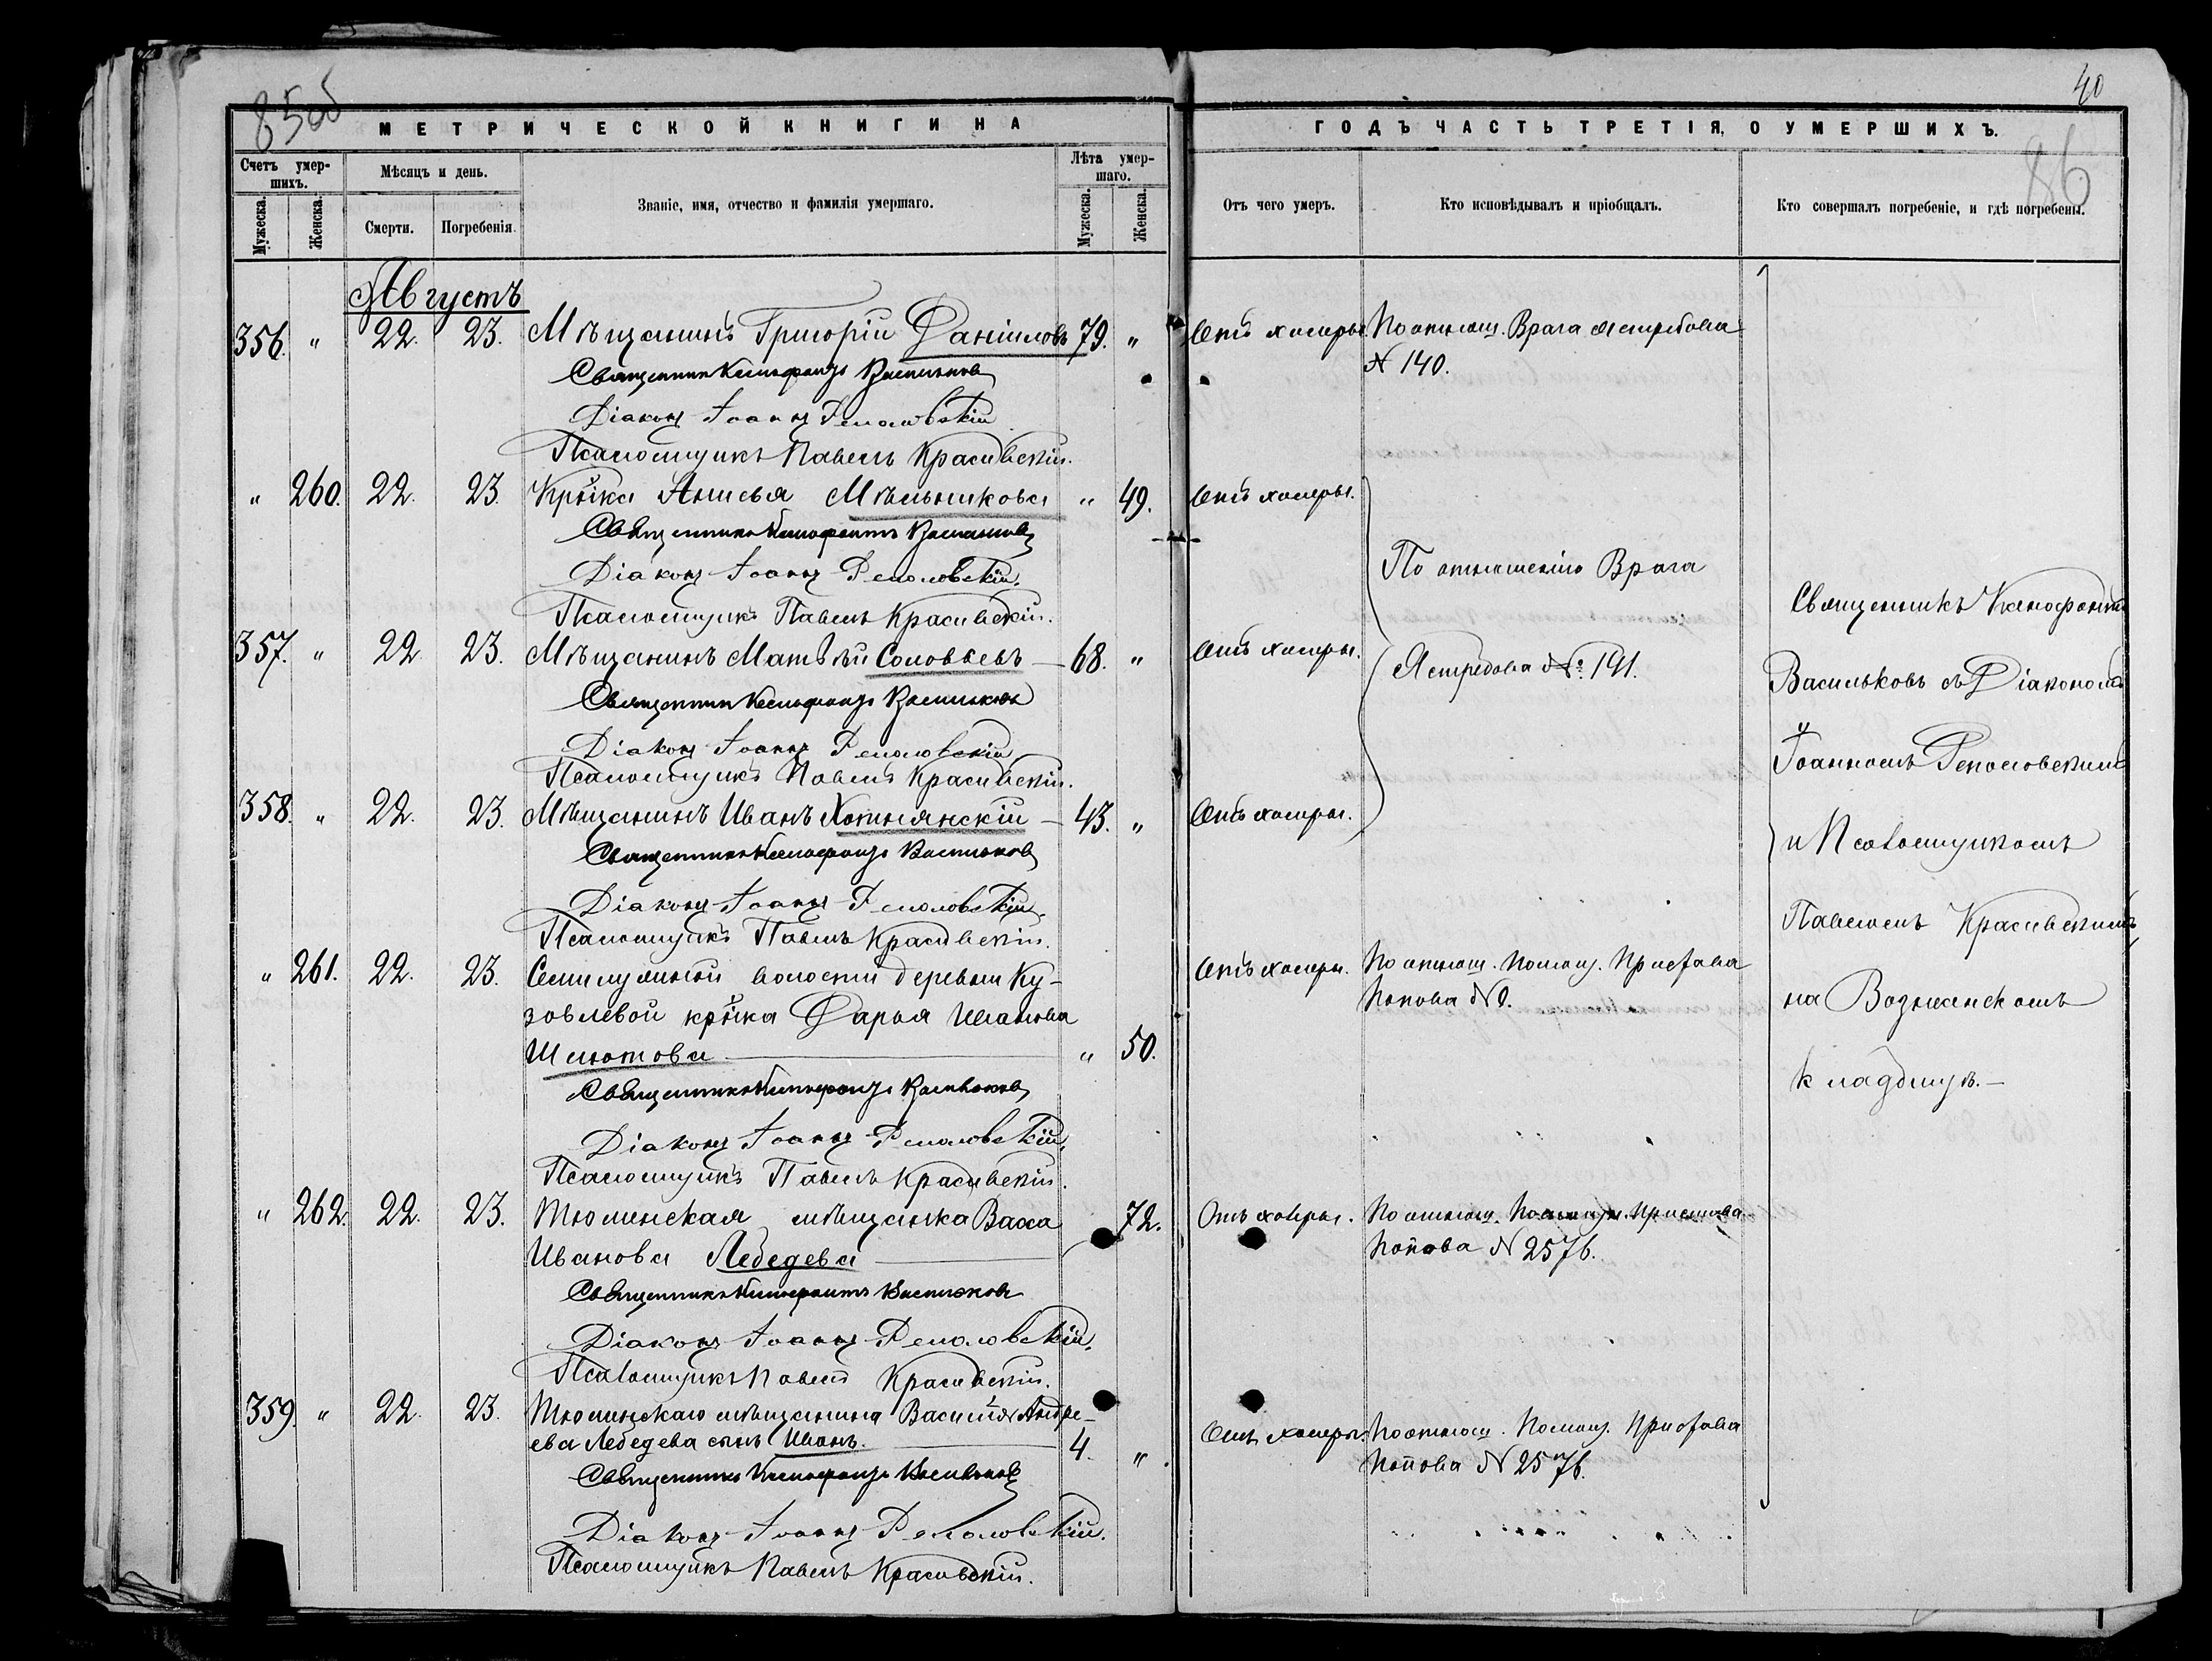 85об
40
86
МЕТРИЧЕСКОЙ КНИГИ НА
ГОДЪ ЧАСТЬ ТРЕТІЯ, О УМЕРШИХЪ.
Счетъ умер-
шихъ.
Мужеска.
Женска.
Мѣсяцъ и день.
Смерти.
Погребенія.
Званіе, имя, отчество и фамилія умершаго.
Лѣта умер-
шаго.
Мужеска.
Женска.
Отъ чего умеръ.
Кто исповѣдывалъ и пріобщалъ.
Кто совершалъ погребеніе, и гдѣ погребены.
Августъ
356. " 22. 23. Мѣщанинъ Григорій Даніиловъ 79. " Отъ холеры. По отнош. Врача Ястребова
№ 140.
Священникъ Ксенофонтъ Васильковъ
Діаконъ Іоаннъ Реполовскій
Псаломщикъ Павелъ Красивскій.
" 260. 22. 23. Кр͠ка Анисья Мѣльникова " 49. Отъ холеры.
Священникъ Ксенофонтъ Васильковъ
Діаконъ Іоаннъ Реполовскій.
Псаломщикъ Павелъ Красивскій.
По отношенію Врача
Ястребова № 191.
357. " 22. 23. Мѣщанинъ Матѳѣй Соловьевъ — 68. " Отъ холеры.
Священникъ Ксенофонтъ Васильковъ
Діаконъ Іоаннъ Реполовскій
Псаломщикъ Павелъ Красивскій.
358. " 22. 23. Мѣщанинъ Иванъ Хотнянскій — 43. " Отъ холеры.
Священникъ Ксенофонтъ Васильковъ
Діаконъ Іоаннъ Реполовскій.
Псаломщикъ Павелъ Красивскій.
" 261. 22. 23. Семилужной волости деревни Ку-
зовлевой кр͠ка Дарья Иванова
Шлютова " 50.
Отъ холеры. По отнош. Помощ. Пристава
Попова № 0.
Священникъ Ксенофонтъ Васильковъ
Діаконъ Іоаннъ Реполовскій.
Псаломщикъ Павелъ Красивскій.
" 262. 22. 23. Тюменская мѣщанка Васса 72.
Иванова Лебедева
Отъ холеры. По отнош. Помощн. Пристава
Попова № 2576.
Священникъ Ксенофонтъ Васильковъ
Діаконъ Іоаннъ Реполовскій.
Псаломщикъ Павелъ Красивскій.
359. " 22. 23. Тюменскаго мѣщанина Василія Андре-
ева Лебедева сынъ Иванъ. 4. "
Отъ холеры. По отнош. Помощ. Пристава
Попова № 2576.
Священникъ Ксенофонтъ Васильковъ
Діаконъ Іоаннъ Реполовскій.
Псаломщикъ Павелъ Красивскій.
Священникъ Ксенофонтъ
Васильковъ съ Діакономъ
Іоанномъ Реполовскимъ
и Псаломщикомъ
Павломъ Красивскимъ
на Вознесенскомъ
кладбищѣ.—